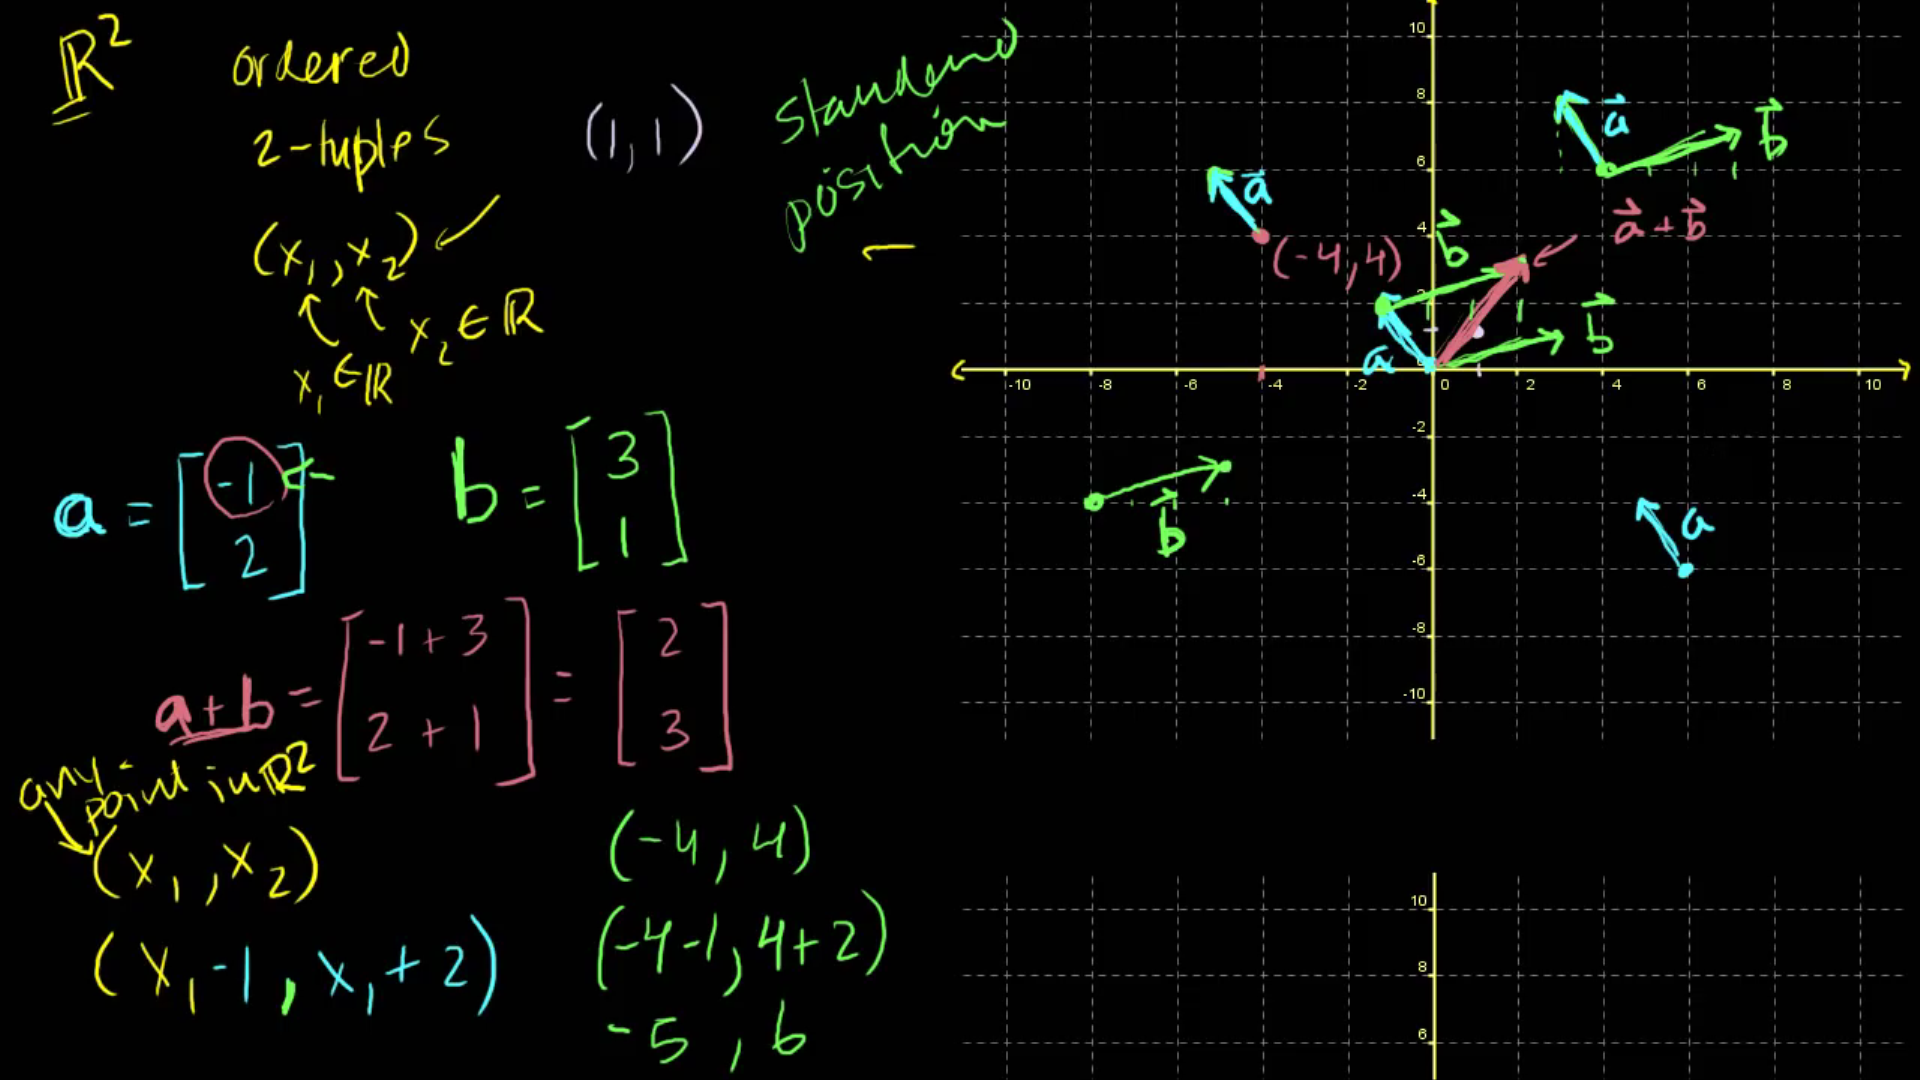 ℝ²
ordered
2-tuples
(x₁, x₂)
x₁ ∈ ℝ
x₂ ∈ ℝ
(1, 1)
standard
position
a = [-1
2]
b = [3
1]
a + b = [-1 + 3
2 + 1] = [2
3]
any
point in ℝ²
(x₁, x₂)
(x₁ - 1, x₁ + 2)
(-4, 4)
(-4-1, 4+2)
-5, 6
10
8
6
4
2
0
-2
-4
-6
-8
-10
-10 -8 -6 -4 -2 0 2 4 6 8 10
a⃗
b⃗
a⃗
(-4, 4)
b⃗
a⃗ + b⃗
b⃗
a
b⃗
a
10
8
6